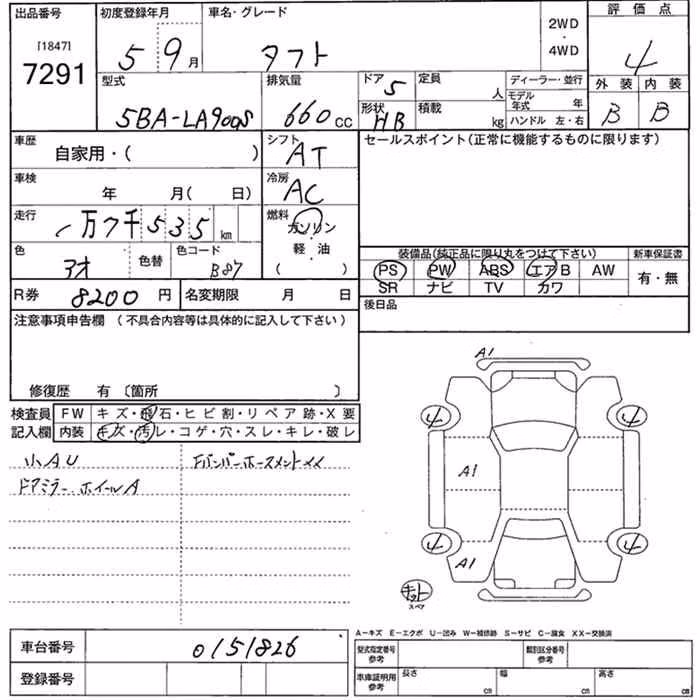 出品番号 初度登録年月 車名・グレード 評価点
[1847]
7291
5 9月 タフト 2WD・4WD 4
型式 排気量 ドア 5 定員 人 ディーラー・並行 外装 内装
5BA-LA900S 660cc 形状 HB 積載 kg モデル年式 年 B B
ハンドル 左・右
車歴 シフト セールスポイント(正常に機能するものに限ります)
自家用・( ) AT
車検 冷房
年 月( 日) AC
走行 燃料
1万7千535km ガソリン・軽油
( )
色 色替 色コード 装備品(純正品に限り丸をつけて下さい) 新車保証書
アオ B87 PS PW ABS エアB AW 有・無
SR ナビ TV カワ
R券 8200円 名変期限 月 日 後日品
注意事項申告欄 (不具合内容等は具体的に記入して下さい)
修復歴 有 〔箇所 〕
検査員 FW キズ・飛石・ヒビ割・リペア跡・X要
記入欄 内装 キズ・汚レ・コゲ・穴・スレ・キレ・破レ
小AU
ドアミラー ホイールA
A1
4 4
A1
4 4
A1
キット
スペア
A-キズ E-エクボ U-凹み W-補修跡 S-サビ C-腐食 XX-交換済
車台番号 0151826 型式指定番号 参考 類別区分番号 参考
登録番号 車庫証明用 参考 長さ cm 幅 cm 高さ cm